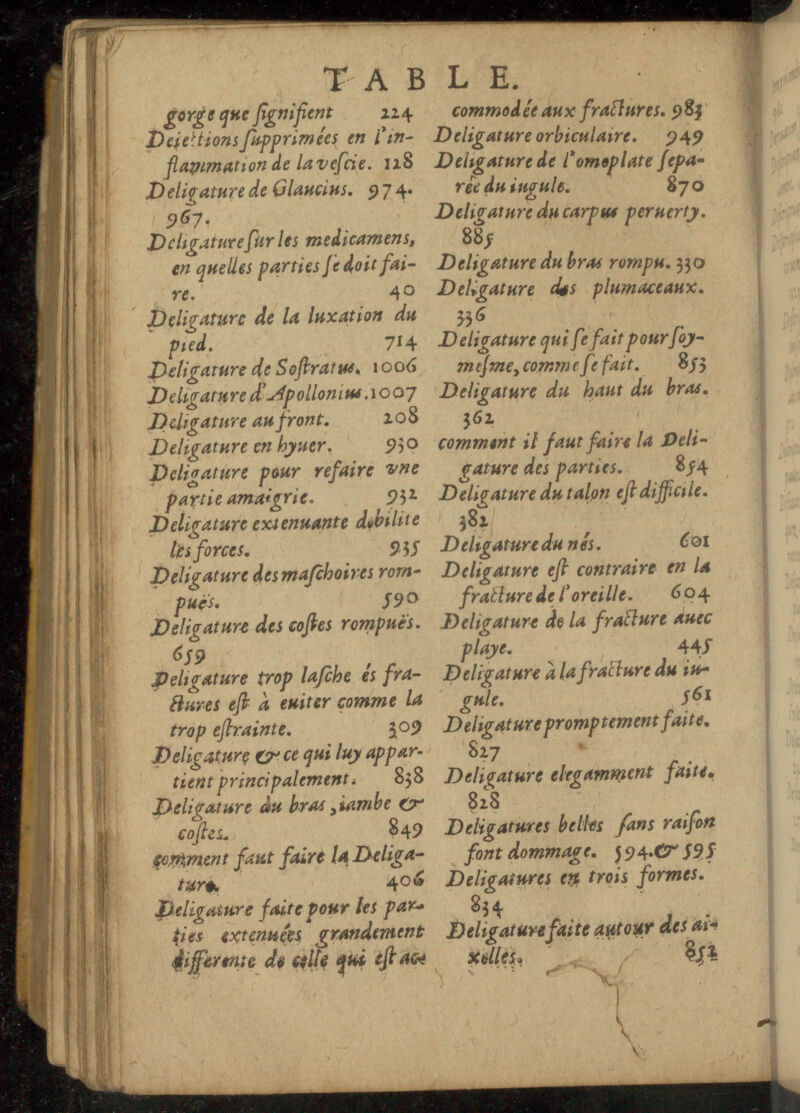 TABLE.
gorge que ſignifient 224
Deiections ſupprimées en l'in-
flammation de la veſcie. 128
Deligature de Glaucius. 974.
967.
Deligature ſur les medicamens,
en quelles parties ſe doit fai-
re. 40
Deligature de la luxation du
pied. 714
Deligature de Soſtratus. 1006
Deligature d'Apollonius. 1007
Deligature au front. 208
Deligature en hyuer. 930
Deligature pour refaire vne
partie amaigrie. 932
Deligature extenuante debilite
les forces. 935
Deligature des maſchoires rom-
pués. 590
Deligature des coſtes rompuës.
659
Deligature trop laſche és fra-
ctures eſt à euiter comme la
trop eſtrainte. 309
Deligature & ce qui luy appar-
tient principalement. 838
Deligature du bras, iambe &
coſtes. 849
comment faut faire la Deliga-
ture. 406
Deligature faite pour les par-
ties extenuées grandement
differente de celle qui eſt acc
commodée aux fractures. 983
Deligature orbiculaire. 949
Deligature de l'omoplate ſepa-
rée du iugule. 870
Deligature du carpus peruerty.
885
Deligature du bras rompu. 330
Deligature des plumaceaux.
336
Deligature qui ſe fait pour ſoy-
meſme, comme ſe fait. 853
Deligature du haut du bras.
362
comment il faut faire la Deli-
gature des parties. 854
Deligature du talon eſt difficile.
382
Deligature du nés. 601
Deligature eſt contraire en la
fracture de l'oreille. 604
Deligature de la fracture auec
playe. 445
Deligature à la fracture du iu-
gule. 561
Deligature promptement faite.
827
Deligature elegamment faite.
828
Deligatures belles ſans raiſon
font dommage. 594. & 595
Deligatures en trois formes.
834
Deligature faite autour des ai-
xelles. 852